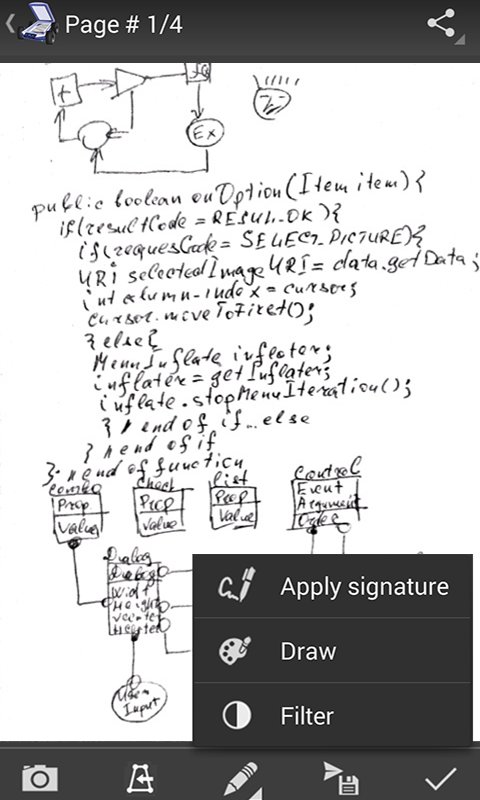 Page # 1/4
+
Ex
public boolean onOption(Item item){
if(resultCode = RESUL_OK){
if(requesCode = SELECT_PICTURE){
URI selectedImageURI = data.getData;
int column-index = cursor;
cursor.moveToFirst();
} else{
MenuInflate inflater;
inflater = getInflater;
inflate.stopMenuIteration();
} // end of if...else
} // end of if
}. // end of function
Combo
Prop
Value
Check
Prop
Value
List
Prop
Value
Control
Event
Argument
Order
Dialog
Dialog
Widt
Height
User
Input
Apply signature
Draw
Filter